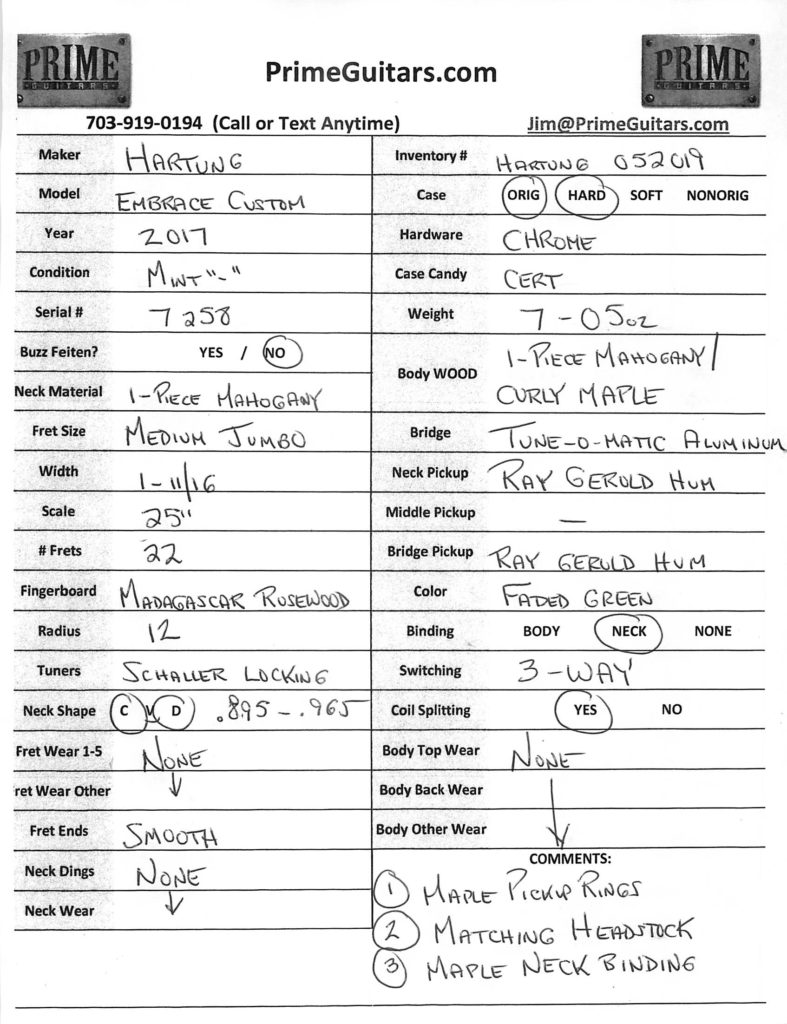 PRIME
GUITARS
PrimeGuitars.com
PRIME
GUITARS
703-919-0194 (Call or Text Anytime)
Jim@PrimeGuitars.com
Maker HARTUNG
Model EMBRACE CUSTOM
Year 2017
Condition MINT "-"
Serial # 7258
Buzz Feiten? YES / NO
Neck Material 1-PIECE MAHOGANY
Fret Size MEDIUM JUMBO
Width 1-11/16
Scale 25"
# Frets 22
Fingerboard MADAGASCAR ROSEWOOD
Radius 12
Tuners SCHALLER LOCKING
Neck Shape C V D .895-.965
Fret Wear 1-5 NONE
ret Wear Other
Fret Ends SMOOTH
Neck Dings NONE
Neck Wear
Inventory # HARTUNG 052019
Case ORIG HARD SOFT NONORIG
Hardware CHROME
Case Candy CERT
Weight 7-05oz
Body WOOD 1-PIECE MAHOGANY/
CURLY MAPLE
Bridge TUNE-O-MATIC ALUMINUM
Neck Pickup RAY GEROLD HUM
Middle Pickup —
Bridge Pickup RAY GEROLD HUM
Color FADED GREEN
Binding BODY NECK NONE
Switching 3-WAY
Coil Splitting YES NO
Body Top Wear NONE
Body Back Wear
Body Other Wear
COMMENTS:
1 MAPLE PICKUP RINGS
2 MATCHING HEADSTOCK
3 MAPLE NECK BINDING